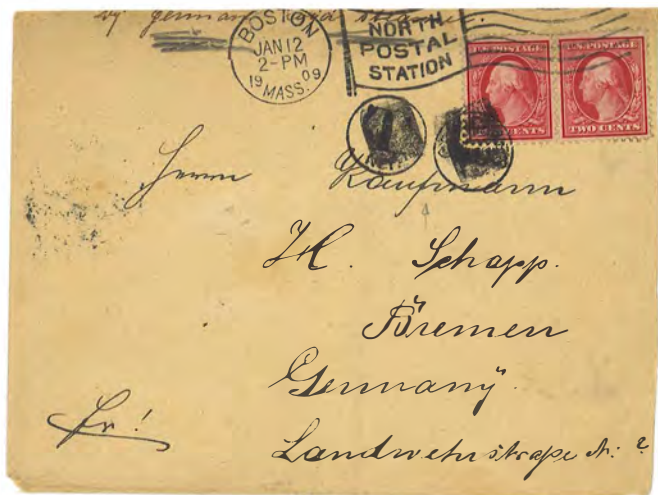 by german
BOSTON
JAN 12
2-PM
1909
MASS.
NORTH
POSTAL
STATION
U.S. POSTAGE
U.S. POSTAGE
CENTS
TWO CENTS
Herrn Kaufmann
H. Schapp.
Bremen
Germany.
Fr!
Landwehrstraße Nr: ?